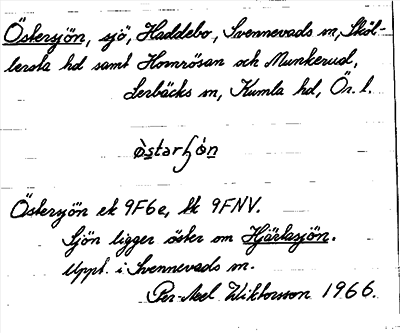 Östersjön, sjö, Haddebo, Svennevads sn, Sköl-
lersta hd samt Homrösan och Munkerud,
Lerbäcks sn, Kumla hd, Ör. l.
östarɧön
Östersjön ek 9F6e, tk 9FNV.
Sjön ligger öster om Hjärtasjön.
Uppt. i Svennevads sn.
Per-Axel Wiktorsson 1966.